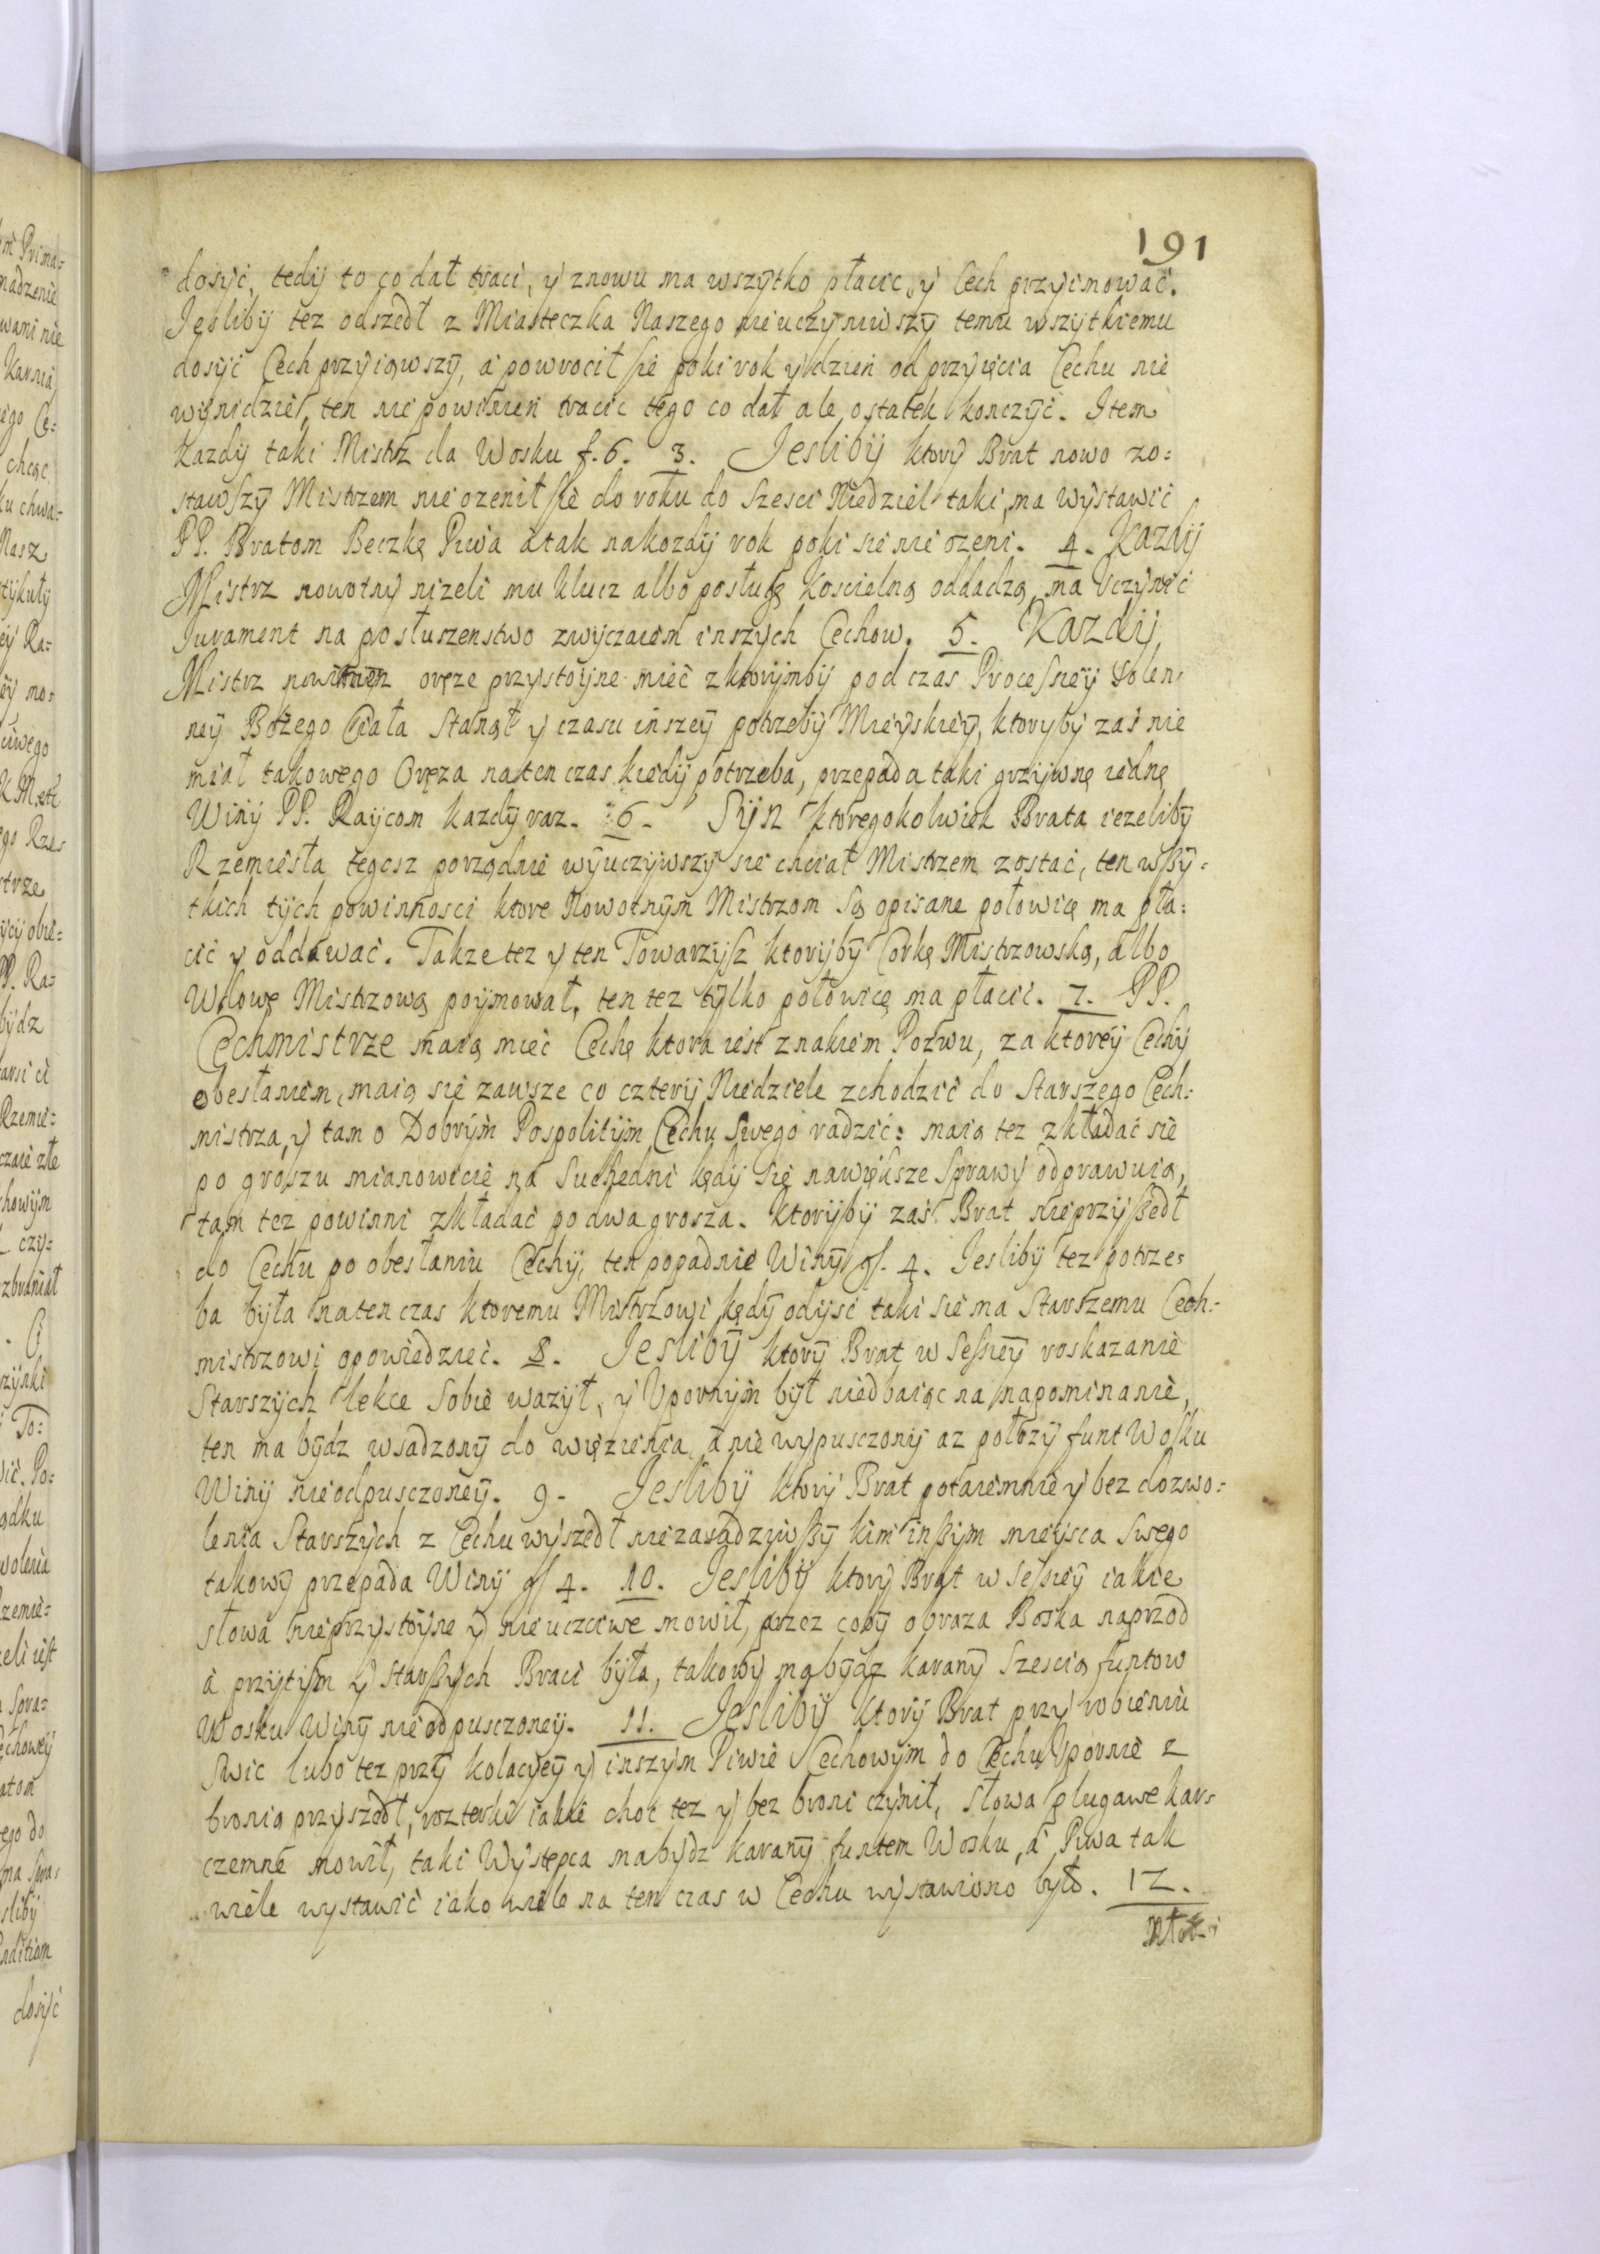 191
dosyć, tedy to co dał traci, y znowu ma wszytko płacić, y Cech przyimować.
Jesliby tez odszedł z Miasteczka Naszego nieuczyniwszy temu wszytkiemu
dosyć Cech przyiąwszy, a powrocił sie poki rok y dzień od przyięcia Cechu nie
wynidzie, ten nie powinien tracić tego co dał ale ostatek konczyć. Item
Kazdy taki Mistrz da Wosku f. 6. 3. Jesliby ktory Brat nowo zo=
stawszy Mistrzem nie ozenił sie do roku do szesci Niedziel taki, ma wystawić
PP. Bratom Beczkę Piwa a tak nakozdy rok poki sie nie ozeni. 4. Kazdy
Mistrz nowotny nizeli mu klucz albo posługę Koscielną oddadzą, ma uczynić
Jurament na posłuszenstwo zwyczaiem inszych Cechow. 5. Kazdy
Mistrz oręze przystoyne mieć z ktorymby pod czas Processiey Solen=
ney Bożego Ciała Stanął y czasu inszey potrzeby Mieyskiey, ktoryby zaś nie
miał takowego Oręza na ten czas kiedy potrzeba, przepada taki grzywnę iednę
Winy PP. Raycom kazdy raz. 6. Syn ktoregokolwiek Brata iezeliby
Rzemiesła tegosz porządnie wyuczywszy sie chciał Mistrzem zostać, ten wszy=
tkich tych powinnosci ktore Nowotnym Mistrzom są opisane połowicę ma pła=
cić y oddawać. Takze tez y ten Towarzysz ktoryby Corkę Mistrzowską, albo
Wdowę Mistrzową poymował, ten tez tylko połowicę ma płacić. 7. PP.
Cechmistrze maią mieć Cechę ktora iest znakiem Pozwu, za ktorey Cechy
obesłaniem, maią się zawsze co cztery Niedziele zchodzić do Starszego Cech=
mistrza, y tam o Dobrym Pospolitym Cechu Swego radzić: maią tez zkładać sie
po groszu mianowicie na Suchedni kędy się nawiększe Sprawy odprawuią,
tam tez powinni zkładać po dwa grosza. Ktoryby zaś Brat nieprzyszedł
do Cechu po obesłaniu Cechy, ten popadnie Winy gr. 4. Jesliby tez potrze=
ba była na ten czas ktoremu Mistrzowi kędy odyść taki sie ma Starszemu Cech=
mistrzowi opowiedzieć. 8. Jesliby ktory Brat w Sessiey roskazanie
Starszych lekce Sobie wazył, y Upornym był niedbaiąc na napominanie,
ten ma bydz wsadzony do więzienia, a nie wypusczony az położy funt Wosku
Winy nieodpusczoney. 9. Jesliby ktory Brat potaiemnie y bez dozwo=
lenia Starszych z Cechu wyszedł niezasadziwszy kim inszym mieysca Swego
takowy przepada Winy gr 4. 10. Jesliby ktory Brat w Sessiey iakie
słowa nieprzystoyne y nieuczciwe mowił, przez coby obraza Boska naprzod
a przytym y Starszych Braci była, takowy ma bydz karany Szescią funtow
Wosku Winy nieodpusczoney. 11. Jesliby ktory Brat przy robieniu
Swic lubo tez przy kolacyey y inszym Piwie Cechowym do Cechu Upornie z
bronią przyszedł, rozterki iakie choć tez y bez broni czynił, Słowa plugawe kar=
czemne mowił, taki Występca ma bydz karany funtem Wosku, a Piwa tak
wiele wystawić iako wiele na ten czas w Cechu wystawiono było. 12.